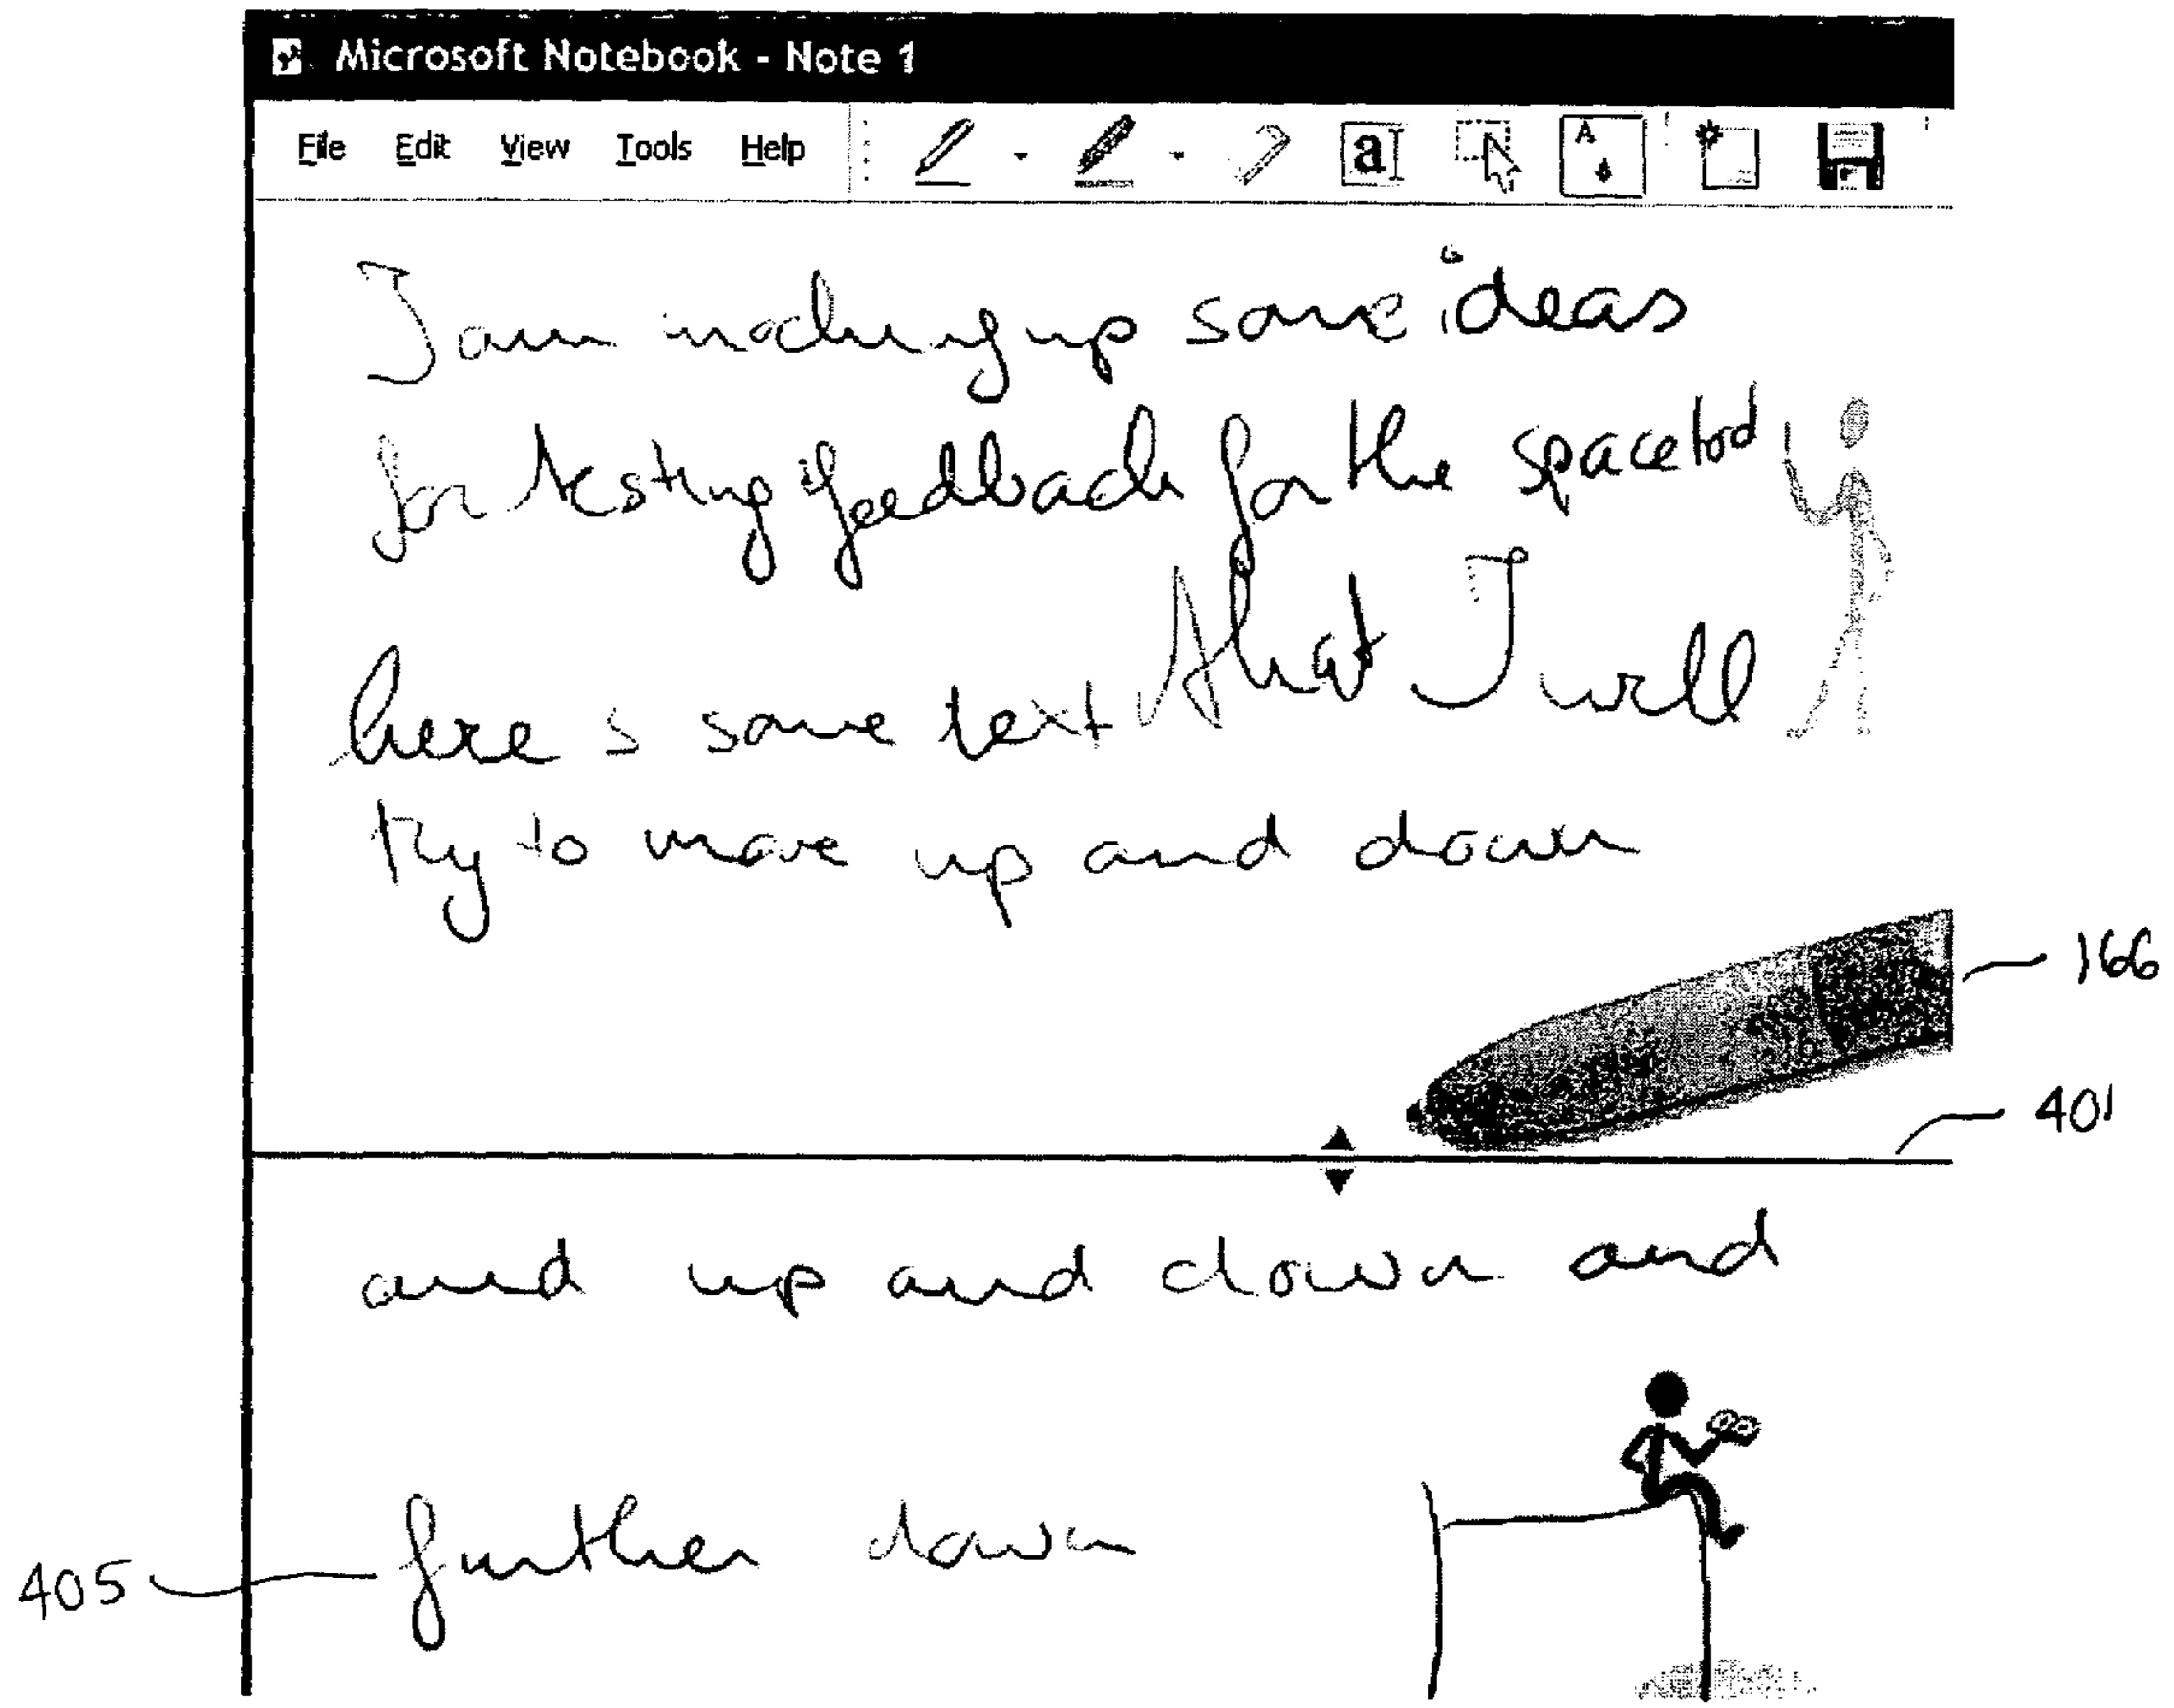 Microsoft Notebook - Note 1
File Edit View Tools Help a A
I am making up some ideas
for testing feedback for the
here s some text that I will
try to move up and down
166
401
and up and down and
further down
405